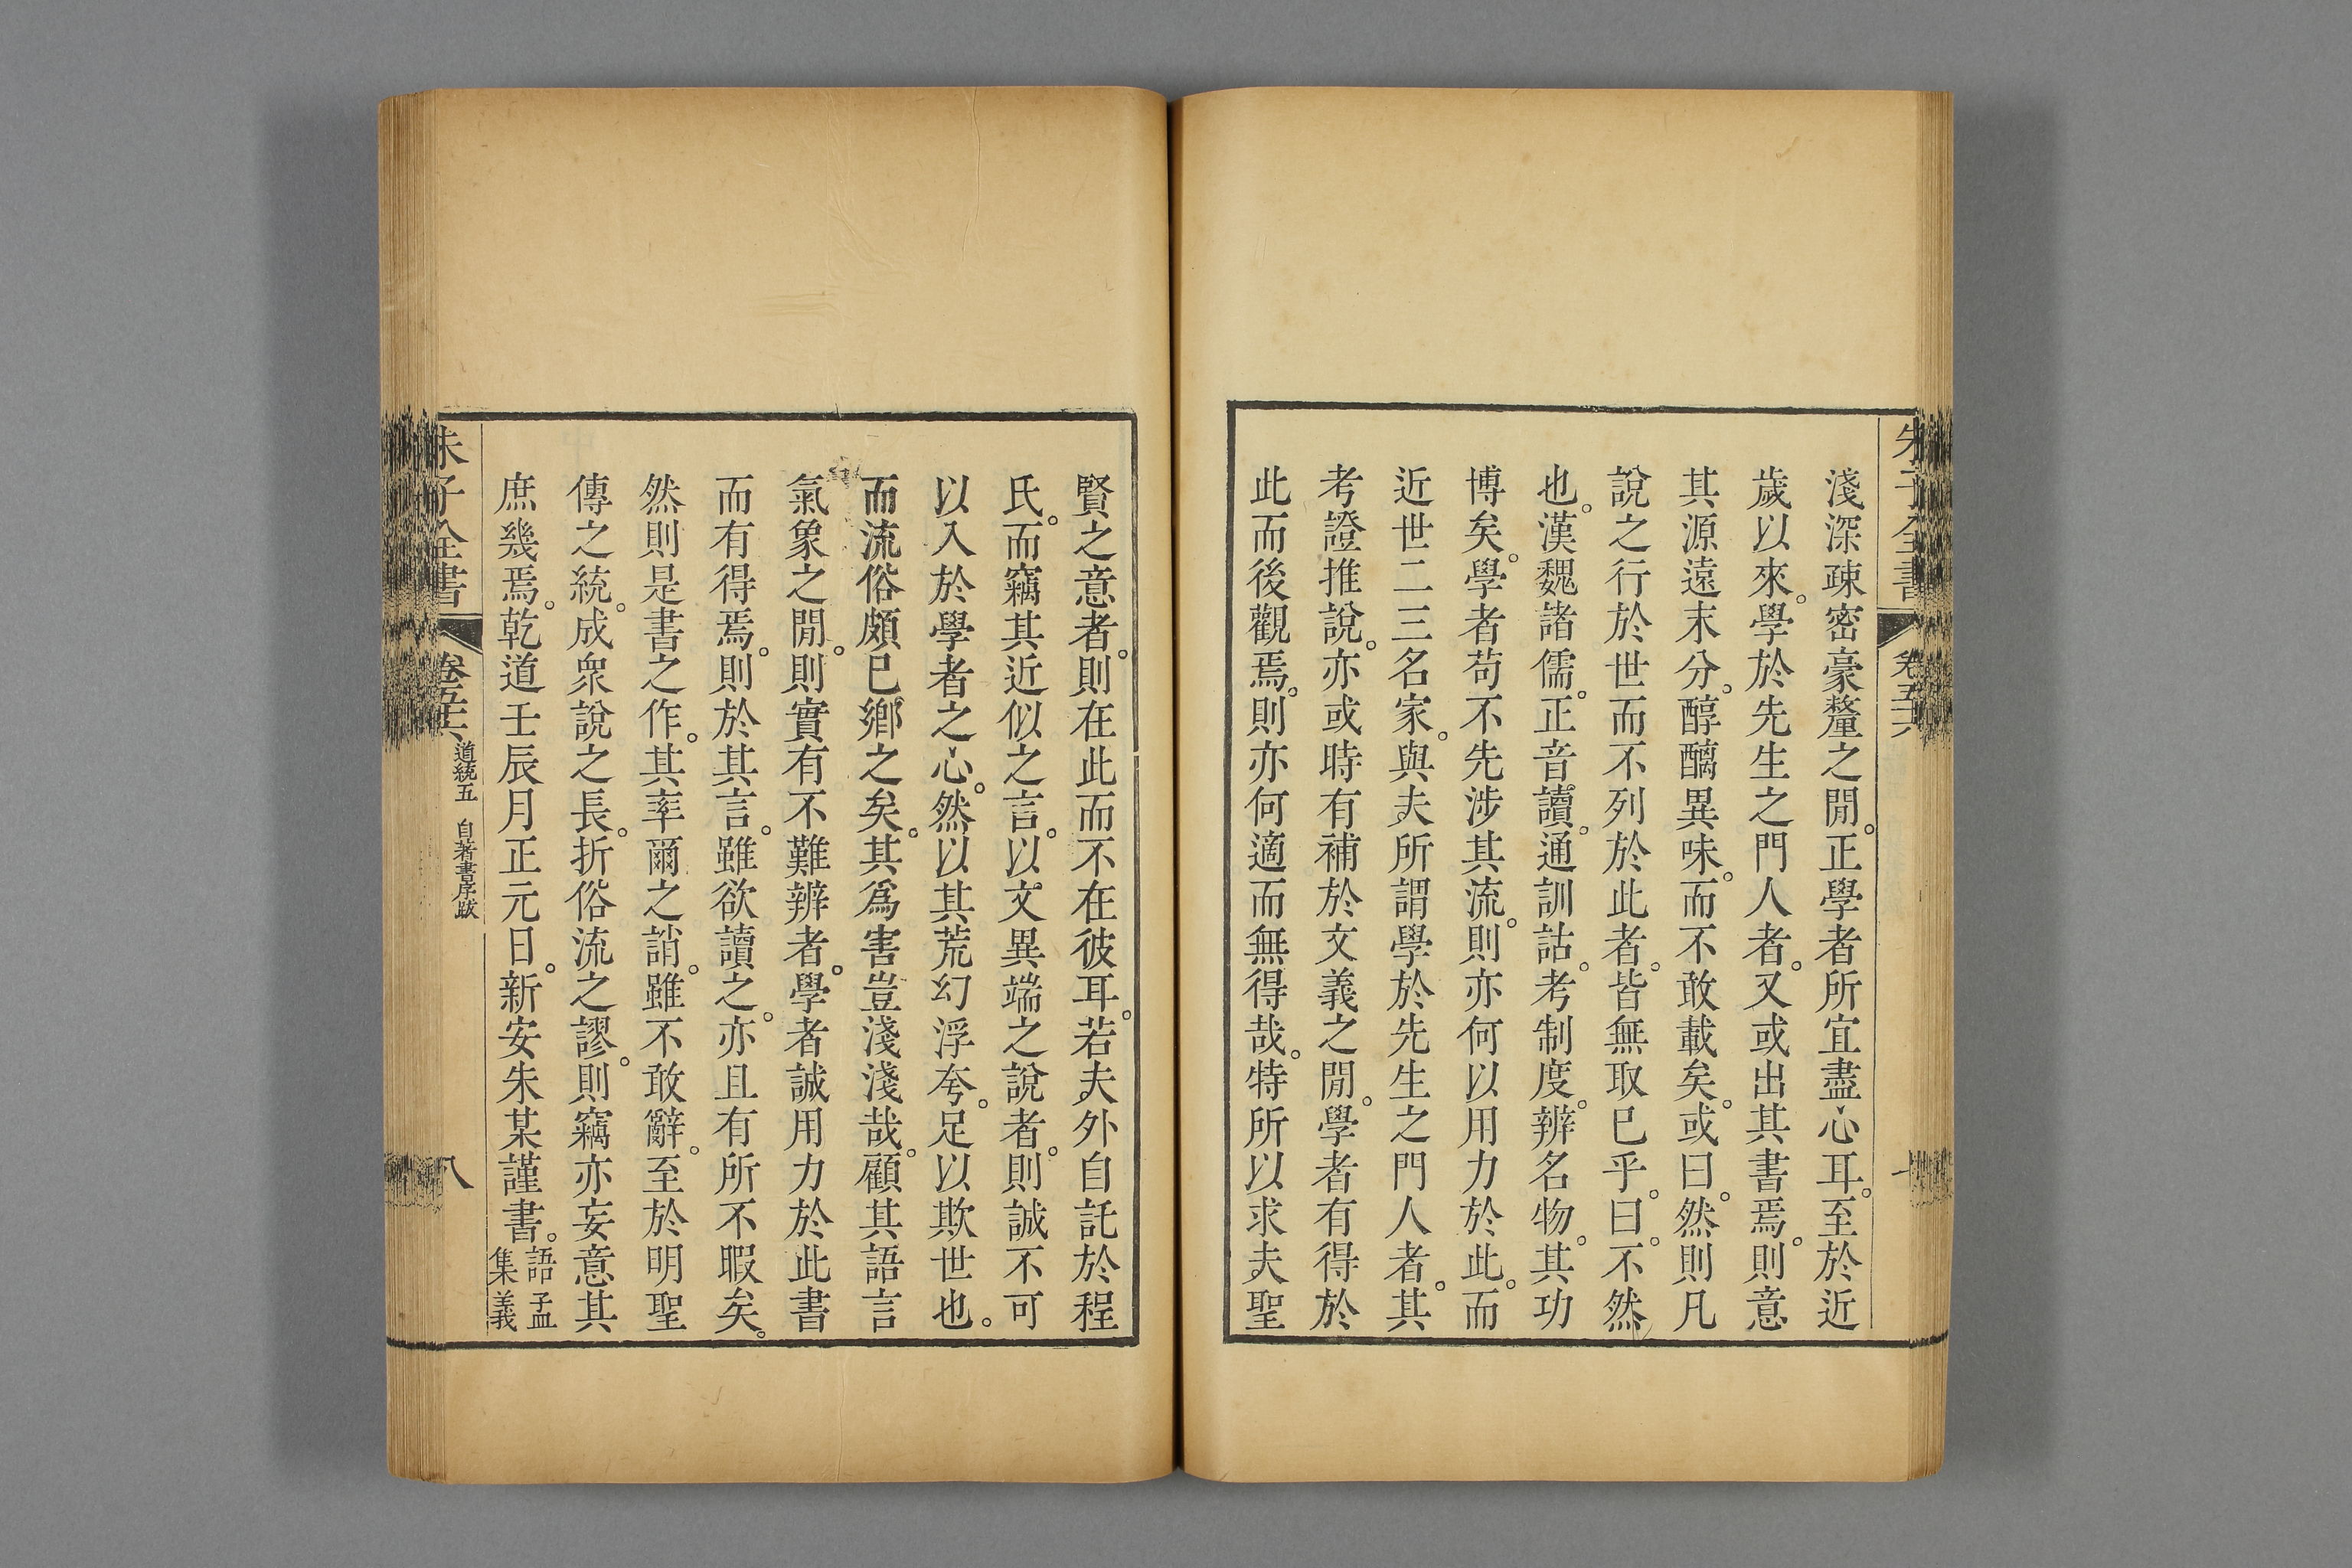 朱子全書 卷五十六 七
淺深疎密豪釐之閒。正學者所宜盡心耳。至於近
歲以來。學於先生之門人者。又或出其書焉。則意
其源遠末分。醇醨異味。而不敢載矣。或曰。然則凡
說之行於世而不列於此者。皆無取已乎。曰。不然
也。漢魏諸儒。正音讀。通訓詁。考制度。辨名物。其功
博矣。學者苟不先涉其流。則亦何以用力於此。而
近世二三名家。與夫所謂學於先生之門人者。其
考證推說。亦或時有補於文義之閒。學者有得於
此而後觀焉。則亦何適而無得哉。特所以求夫聖
賢之意者。則在此而不在彼耳。若夫外自託於程
氏。而竊其近似之言。以文異端之說者。則誠不可
以入於學者之心。然以其荒幻浮夸。足以欺世也。
而流俗頗已鄉之矣。其爲害豈淺淺哉。顧其語言
氣象之閒。則實有不難辨者。學者誠用力於此書
而有得焉。則於其言。雖欲讀之。亦且有所不暇矣。
然則是書之作。其率爾之誚。雖不敢辭。至於明聖
傳之統。成衆說之長。折俗流之謬。則竊亦妄意其
庶幾焉。乾道壬辰月正元日。新安朱某謹書。語孟
集義
朱子全書 卷五十六 道統五 自著書序跋 八